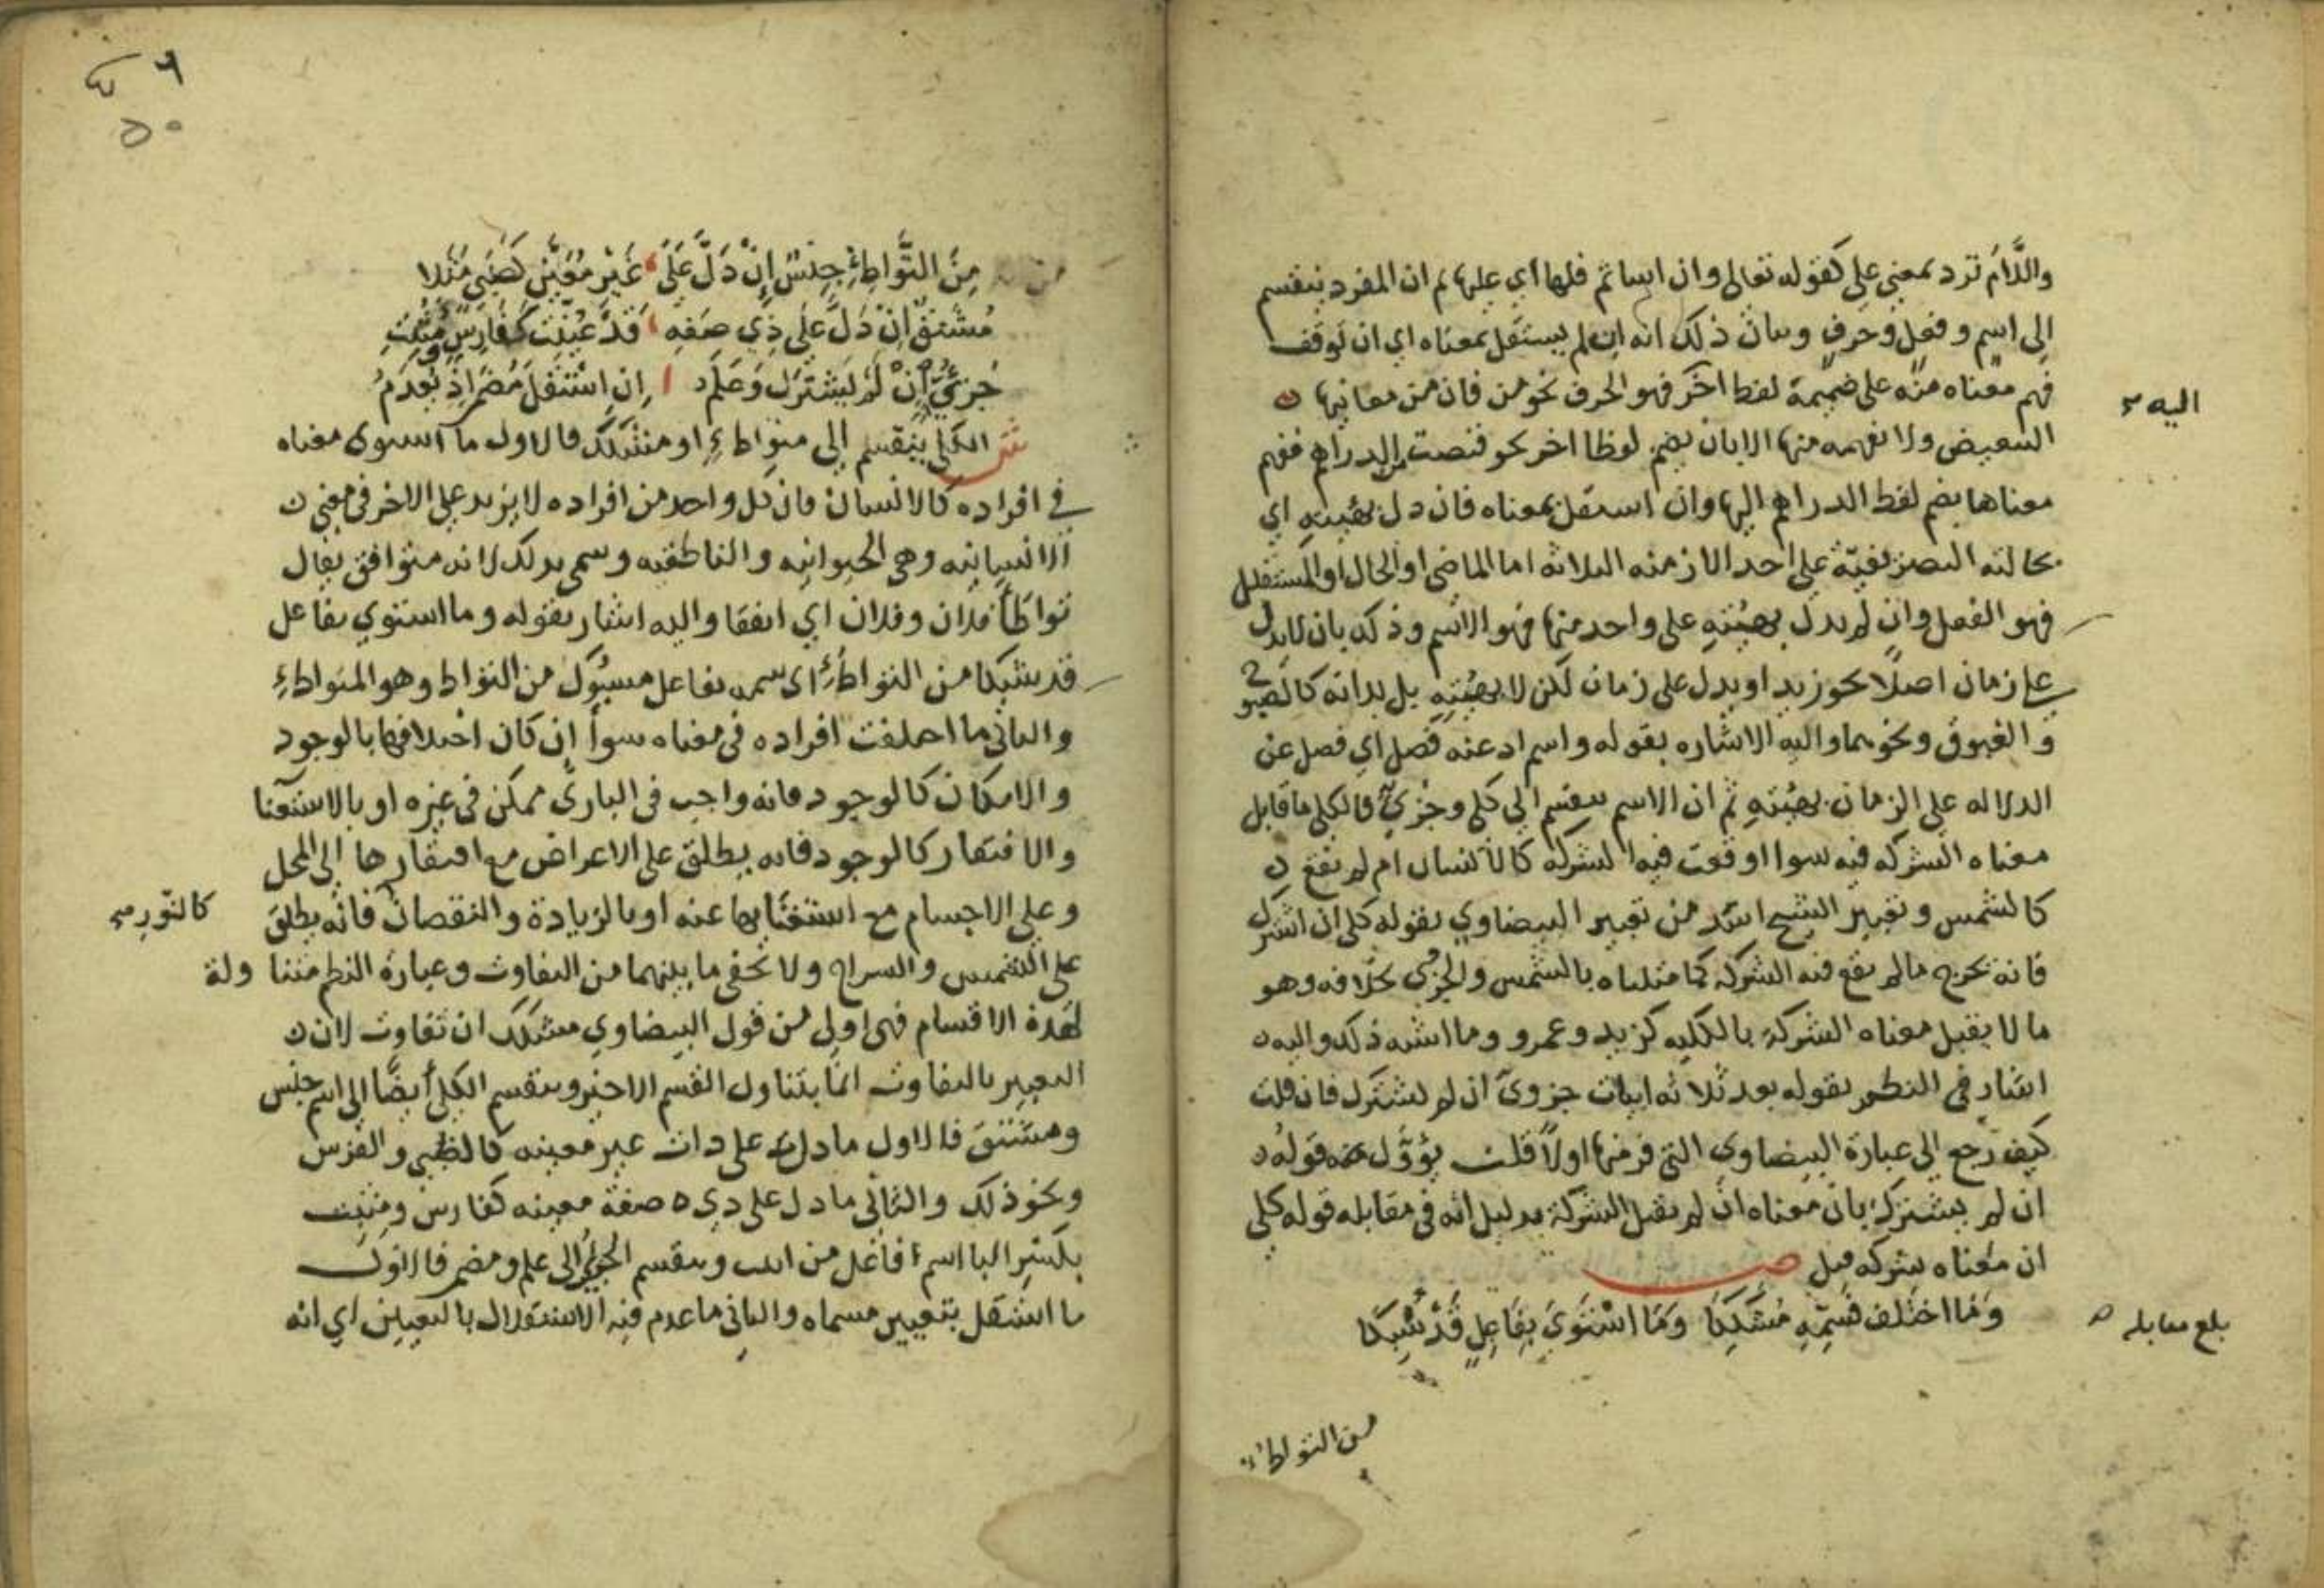 واللام ترد بمعنى على كقوله تعالى وان اساتم فلها اي عليها ثم ان المفرد ينقسم
الى اسم وفعل وحرف وبيان ذلك انه ان لم يستقل بمعناه اي ان توقف
فهم معناه منه على ضميمة لفظ اخر فهو الحرف نحو من فان من معانيها
التبعيض ولا تفهمه منها الا بان تضم لفظا اخر نحو قبضت من الدراهم ففهم
معناها بضم لفظ الدراهم اليها وان استقل بمعناه فان دل بهيئته اي
بحالته التصريفية على احد الازمنة الثلاثة اما الماضي او الحال او المستقبل
فهو الفعل وان لم يدل بهيئته على واحد منها فهو الاسم وذلك بان لا يدل
على زمان اصلا نحو زيد او يدل على زمان لكن لا بهيئته بل بذاته كالصبوح
والغبوق ونحوهما واليه الاشارة بقوله واسم اذ عنه فصل اي فصل عن
الدلالة على الزمان بهيئته ثم ان الاسم ينقسم الى كلي وجزي فالكلي ما قابل
معناه الشركة فيه سوا اوقعت فيه الشركة كالانسان ام لم تقع
كالشمس وتعبير الشيخ اسد من تعبير البيضاوي بقوله كلي ان اشترك
فانه يخرج ما لم يقع فيه الشركة كما مثلناه بالشمس والجزي بخلافه وهو
ما لا يقبل معناه الشركة بالكلية كزيد وعمرو وما اشبه ذلك واليه
اشار في النظم بقوله بعد ثلاثة ابيات جزوي ان لم يشترك فان قلت
كيف رجع الى عبارة البيضاوي التي فر منها اولا قلت يؤول قوله
ان لم يشترك بان معناه ان لم يقبل الشركة بدليل انه في مقابلة قوله كلي
ان معناه شركة قبل ص
وَمَا اختلف فسمه مشككا وَمَا اسْتَوَى بِفَاعِلٍ قَدْ شبكا
اليه
بلغ مقابلة
من التواطئ
مِنَ التَّوَاطِئِ جِنْسٌ إِنْ دَلَّ عَلَى غَيْرِ مُعَيَّنٍ كَظَبْيٍ مَثَلا
مُشْتَقٌّ إِنْ دَلَّ عَلَى ذِي صَفه قَدْ عُيِّنَتْ كَفَارِسٍ وَمُثْبِتِ
جُزئِيٌّ إِنْ لَمْ يَشْتَرِك وَعَلَم إِنِ اسْتَقَلَّ مُضْمَر إِذْ يُعدَمُ
ش الكلي ينقسم الى متواطئ او متشكك فالاول ما استوى معناه
في افراده كالانسان فان كل واحد من افراده لا يزيد على الاخر في معنى
الانسانية وهي الحيوانية والناطقية وسمي بذلك لانه متوافق يقال
تواطأ فلان وفلان اي اتفقا واليه اشار بقوله وما استوي بفاعل
قد شبكا من التواطئ اي سمه بفاعل مسبوك من التواطئ وهو المتواطئ
والثاني ما اختلفت افراده في معناه سوأ إن كان اختلافها بالوجود
والامكان كالوجود فانه واجب في الباري ممكن في غيره او بالاستغنا
والافتقار كالوجود فانه يطلق على الاعراض مع افتقارها الى المحل
وعلى الاجسام مع استغنايها عنه او بالزيادة والنقصان فانه يطلق
كالنور
على الشمس والسراج ولا يخفى ما بينهما من التفاوت وعبارة النظم متناولة
لهذه الاقسام فهي اولى من قول البيضاوي مشكك ان تفاوت لان
التعبير بالتفاوت انما يتناول القسم الاخير وينقسم الكلي أيضًا الى اسم جنس
ومشتق فالاول ما دل على ذات غير معينه كالظبي والفرس
ونحو ذلك والثاني ما دل على ذي صفة معينه كفارس ومثبت
بكسر البا اسم فاعل من اثبت وينقسم الجزئي الى علم ومضمر فالاول
ما استقل بتعيين مسماه والثاني ما عدم فيه الاستقلال بالتعيين اي انه
٥٠